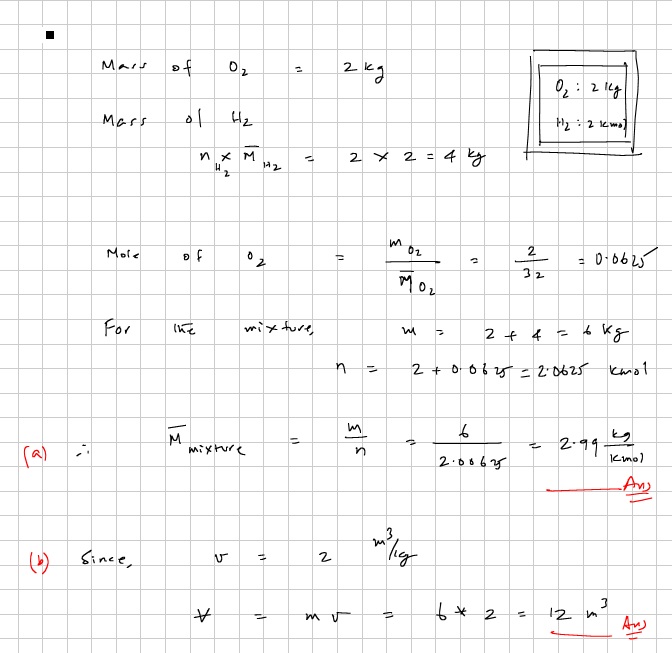 Mass of O₂ = 2 kg
O₂ : 2 kg
H₂ : 2 kmol
Mass of H₂
n_H₂ × M̅_H₂ = 2 × 2 = 4 kg
Mole of O₂ = m_O₂ / M̅_O₂ = 2 / 32 = 0.0625
For the mixture, m = 2 + 4 = 6 kg
n = 2 + 0.0625 = 2.0625 kmol
(a) ∴ M̅ mixture = m / n = 6 / 2.0625 = 2.99 kg / kmol
Ans
(b) Since, v = 2 m³/kg
V̶ = m v = 6 * 2 = 12 m³ Ans